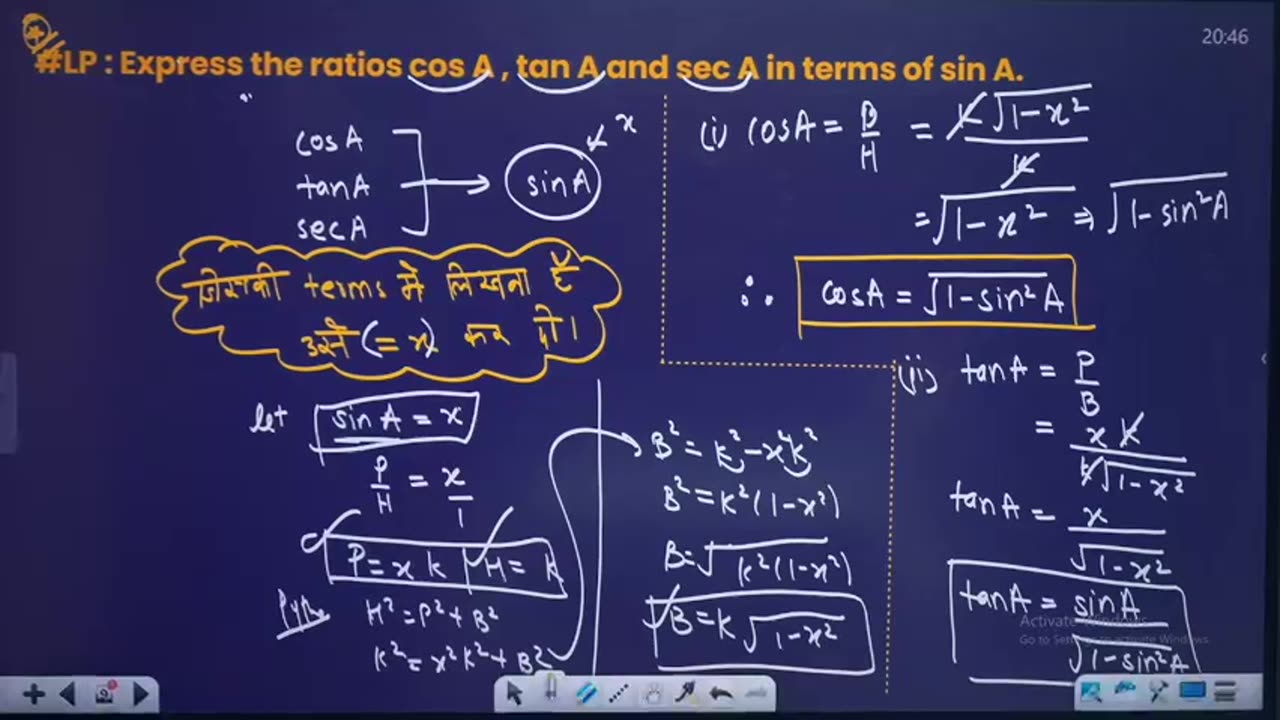 20:46
#LP : Express the ratios cos A , tan A and sec A in terms of sin A.
cosA
tanA
secA
sinA
x
जिसकी terms में लिखना है
उसे (= x) कर दो।
let sinA = x
P/H = x/1
P = x k | H = k
H² = P² + B²
k² = x²k² + B²
B² = k² - x²k²
B² = k²(1-x²)
B = √k²(1-x²)
B = k √1-x²
(i) cosA = B/H = k√1-x² / k
= √1-x² ⇒ √1-sin²A
∴ cosA = √1-sin²A
(ii) tanA = P/B
= x k / k√1-x²
tanA = x / √1-x²
tanA = sinA / √1-sin²A
Activate Windows
Go to Settings to activate Windows.